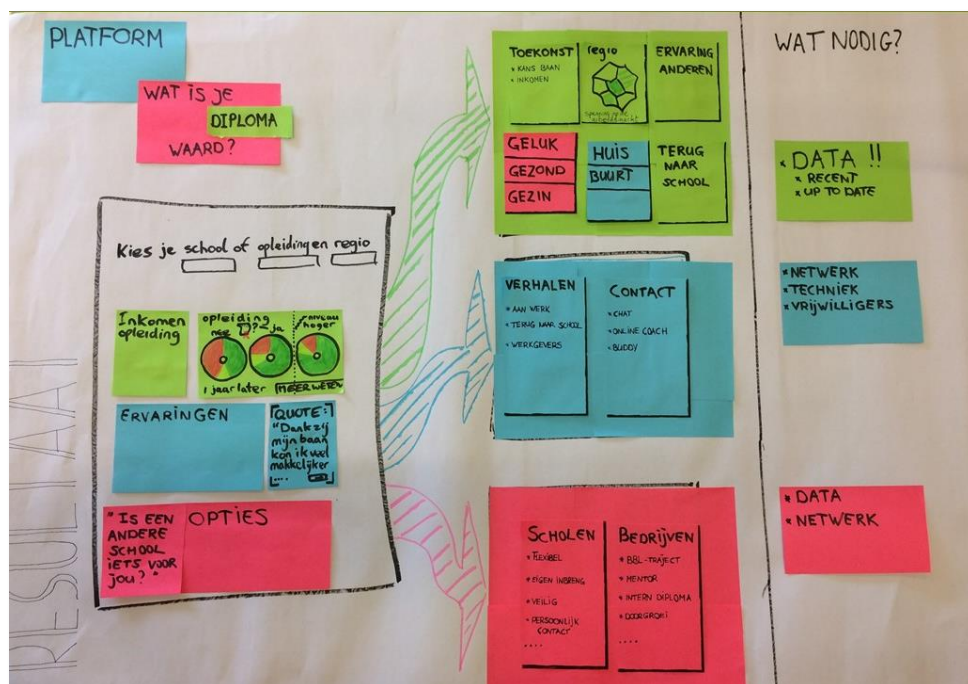 PLATFORM
WAT IS JE
DIPLOMA
WAARD?
Kies je school of opleiding en regio
Inkomen
opleiding
opleiding
nee D? ja
niveau
hoger
1 jaar later MEER WETEN
ERVARINGEN
QUOTE:
"Dankzij
mijn baan
kon ik veel
makkelijker
....
"IS EEN
ANDERE
SCHOOL
IETS VOOR
JOU?"
OPTIES
RESULTAAT
TOEKOMST
* KANS BAAN
* INKOMEN
regio
ERVARING
ANDEREN
GELUK
GEZOND
GEZIN
HUIS
BUURT
TERUG
NAAR
SCHOOL
VERHALEN
* AAN WERK
* TERUG NAAR SCHOOL
* WERKGEVERS
CONTACT
* CHAT
* ONLINE COACH
* BUDDY
SCHOLEN
* FLEXIBEL
* EIGEN INBRENG
* VEILIG
* PERSOONLIJK
CONTACT
....
BEDRIJVEN
* BBL-TRAJECT
* MENTOR
* INTERN DIPLOMA
* DOORGROEI
....
WAT NODIG?
* DATA !!
* RECENT
* UP TO DATE
* NETWERK
* TECHNIEK
* VRIJWILLIGERS
* DATA
* NETWERK